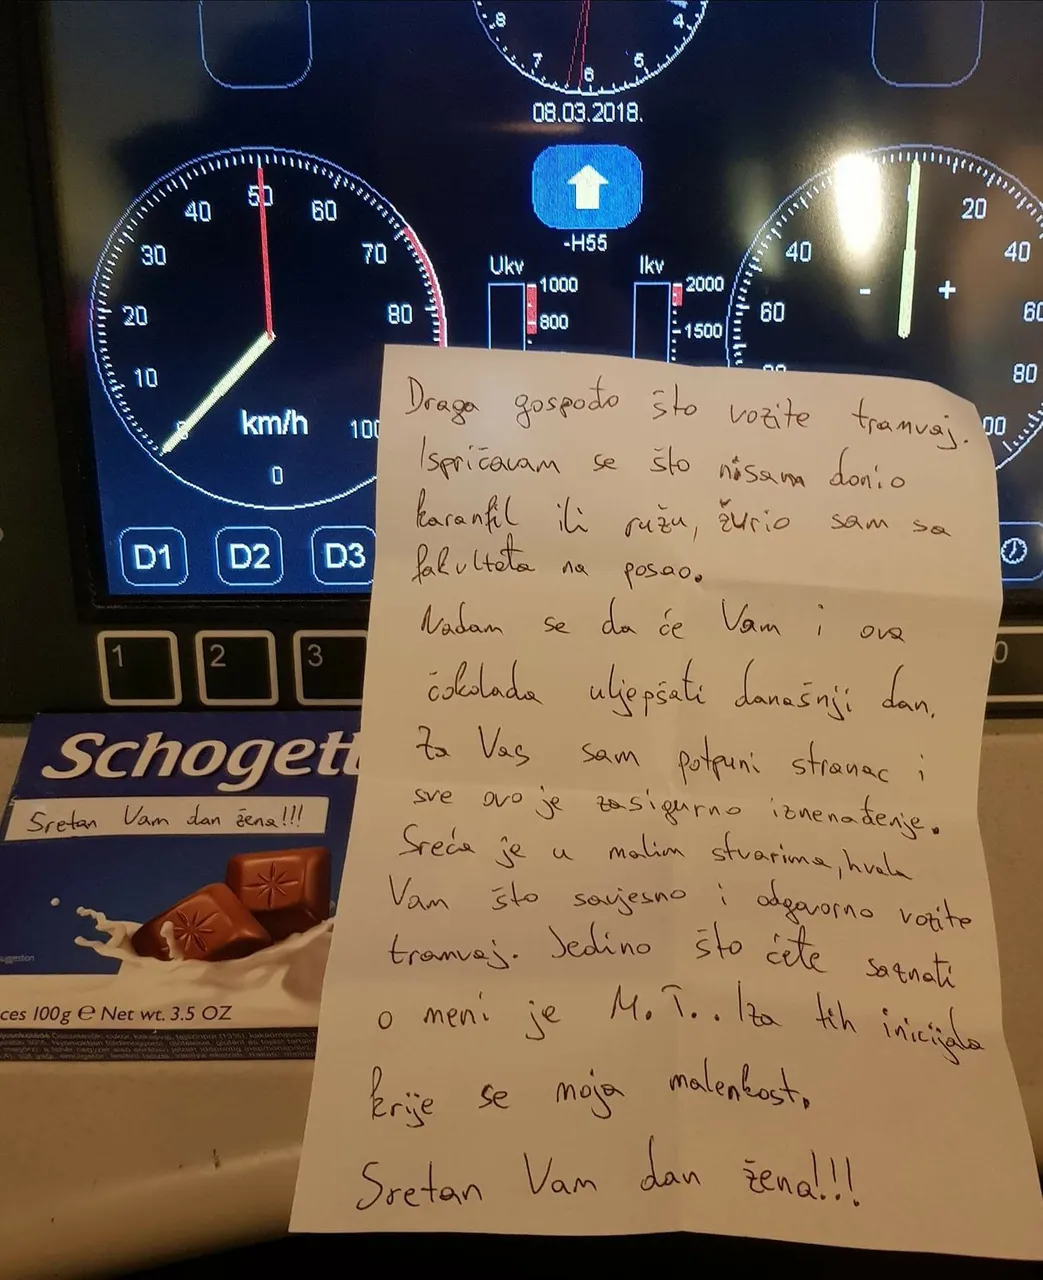 8
7
6
5
4
08.03.2018.
-H55
Ukv
1000
800
Ikv
2000
1500
0
10
20
30
40
50
60
70
80
100
km/h
0
20
40
60
80
40
60
80
00
-
+
D1
D2
D3
1
2
3
0
Schogett
Sretan Vam dan žena!!!
suggestion
ces 100g e Net wt. 3.5 OZ
Draga gospođo što vozite tramvaj.
Ispričavam se što nisam donio
karanfil ili ružu, žurio sam sa
fakulteta na posao.
Nadam se da će Vam i ova
čokolada uljepšati današnji dan.
Za Vas sam potpuni stranac i
sve ovo je zasigurno iznenađenje.
Sreća je u malim stvarima, hvala
Vam što savjesno i odgovorno vozite
tramvaj. Jedino što ćete saznati
o meni je M. T.. Iza tih inicijala
krije se moja malenkost.
Sretan Vam dan žena!!!